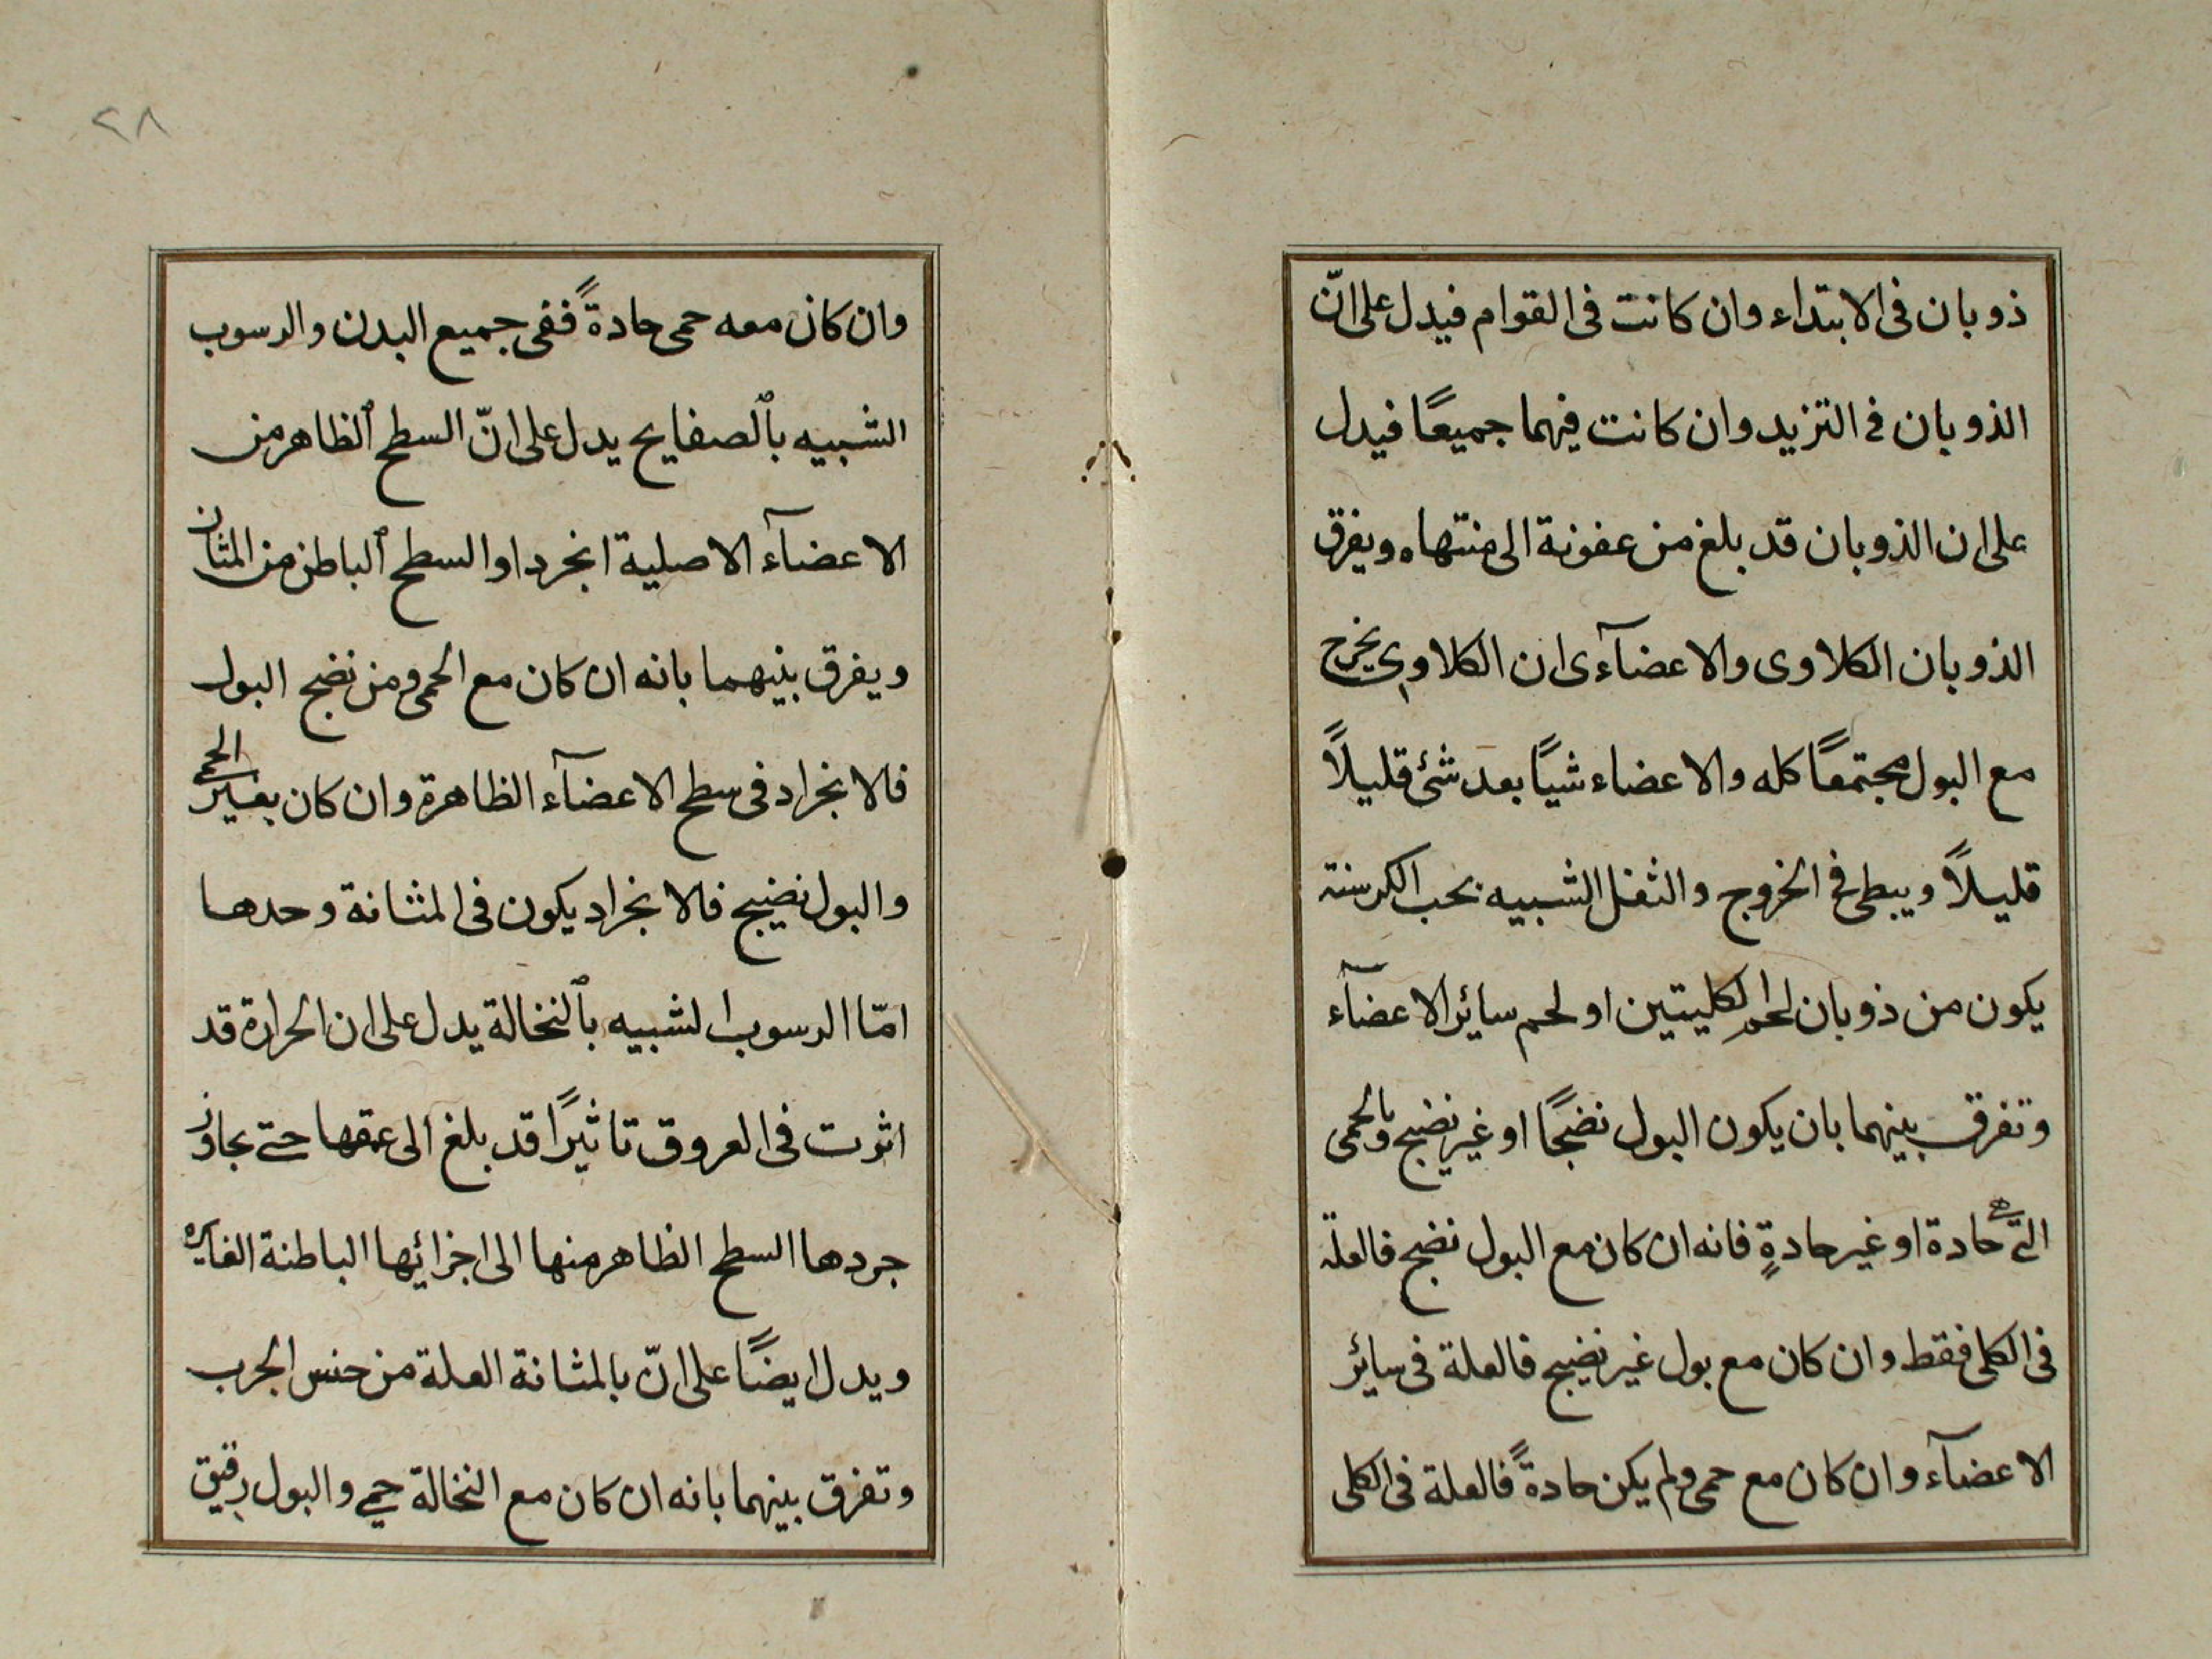 ذوبان فى الابتداء وان كانت فى القوام فيدل على انّ
الذوبان فى التزيد وان كانت فيهما جميعًا فيدل
على ان الذوبان قد بلغ من عفونة الى منتهاه ويفرق
الذوبان الكلاوى والاعضآءى ان الكلاوى يخرج
مع البول مجتمعًا كله والاعضاء شيًا بعد شئ قليلاً
قليلاً ويبطى فى الخروج والثفل الشبيه بحب الكرسنة
يكون من ذوبان لحم الكليتين او لحم سائر الاعضآء
وتفرق بينهما بان يكون البول نضجًا او غير نضيج وبالحمى
التى حادة او غير حادةٍ فانه ان كان مع البول نضج فالعلة
فى الكلى فقط وان كان مع بول غير نضيج فالعلة فى سائر
الاعضآء وان كان مع حمى ولم يكن حادةً فالعلة فى الكلى
٢٨
وان كان معه حمى حادةً ففى جميع البدن والرسوب
الشبيه بالصفايح يدل على انّ السطح الظاهر من
الاعضآء الاصلية انجرد او السطح الباطن من المثان
ويفرق بينهما بانه ان كان مع الحمى ومن نضج البول
فالانجراد فى سطح الاعضآء الظاهرة وان كان بغير الحمى
والبول نضيج فالانجراد يكون فى المثانة وحدها
امّا الرسوب الشبيه بالنخالة يدل على ان الحرارة قد
اثرت فى العروق تاثيرًا قد بلغ الى عمقها حتى تجاوز
جردها السطح الظاهر منها الى اجزائها الباطنة الغايره
ويدل ايضًا على انّ بالمثانة العلة من جنس الجرب
وتفرق بينهما بانه ان كان مع النخالة حمى والبول رقيق